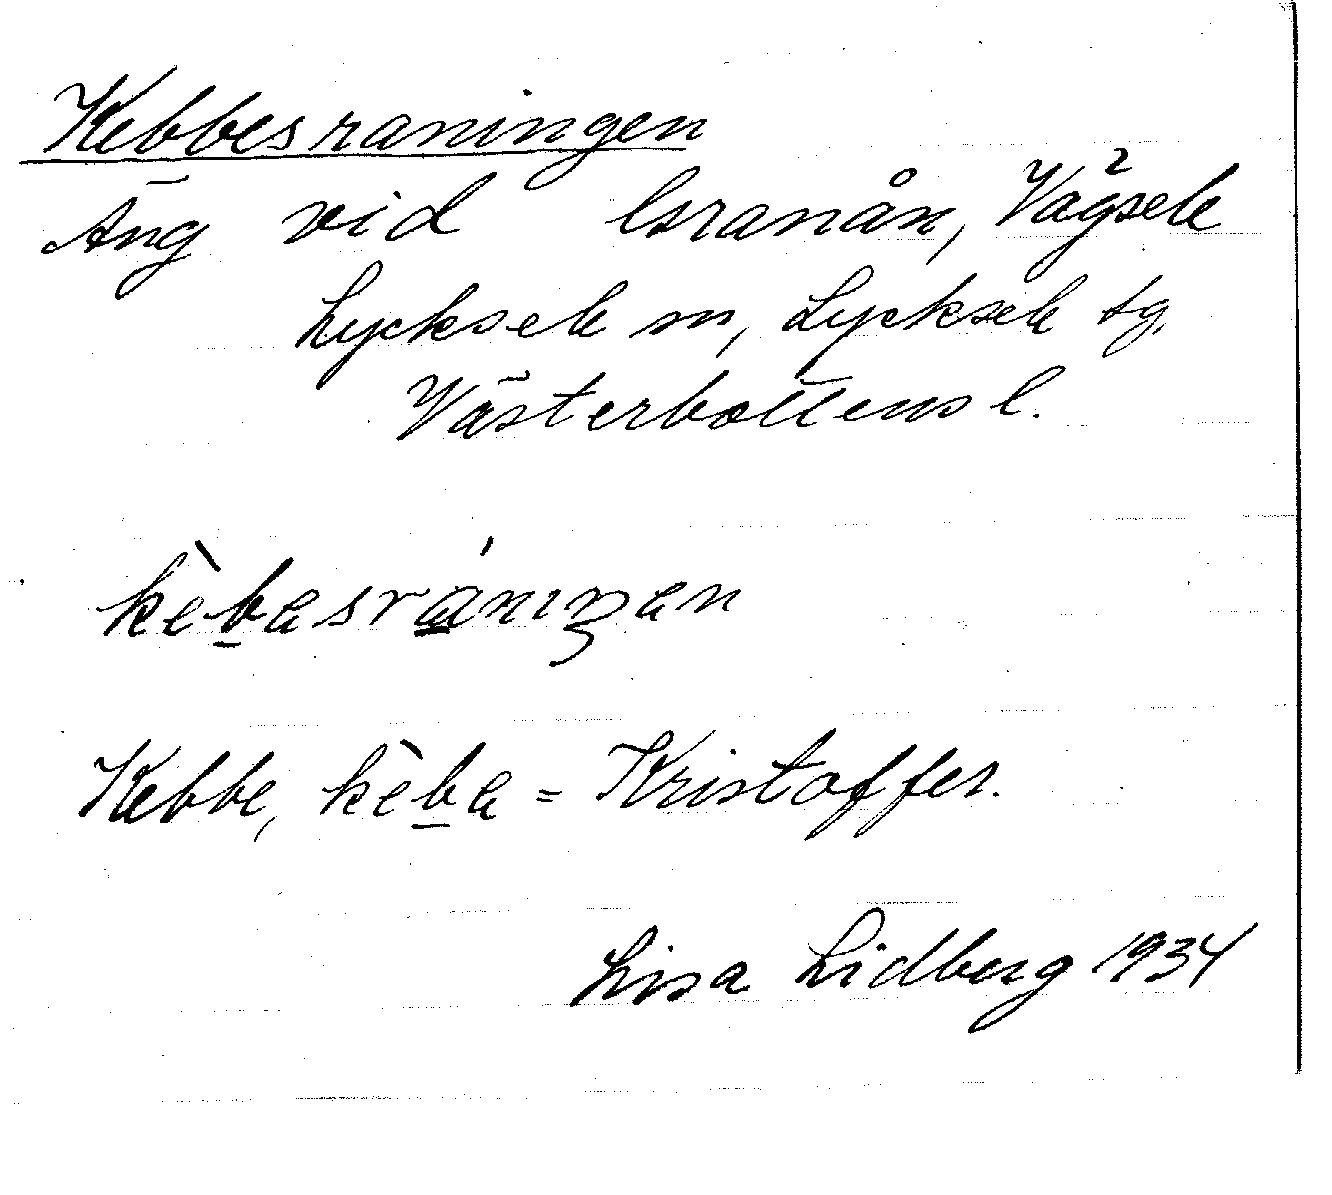 Kebbesraningen
Äng vid Lsranån, Vägsele
Lycksele sn, Lycksele tg.
Västerbottens l.
kèbesrániŋen
Kebbe, kèbe = Kristoffer.
Lisa Lidberg 1934